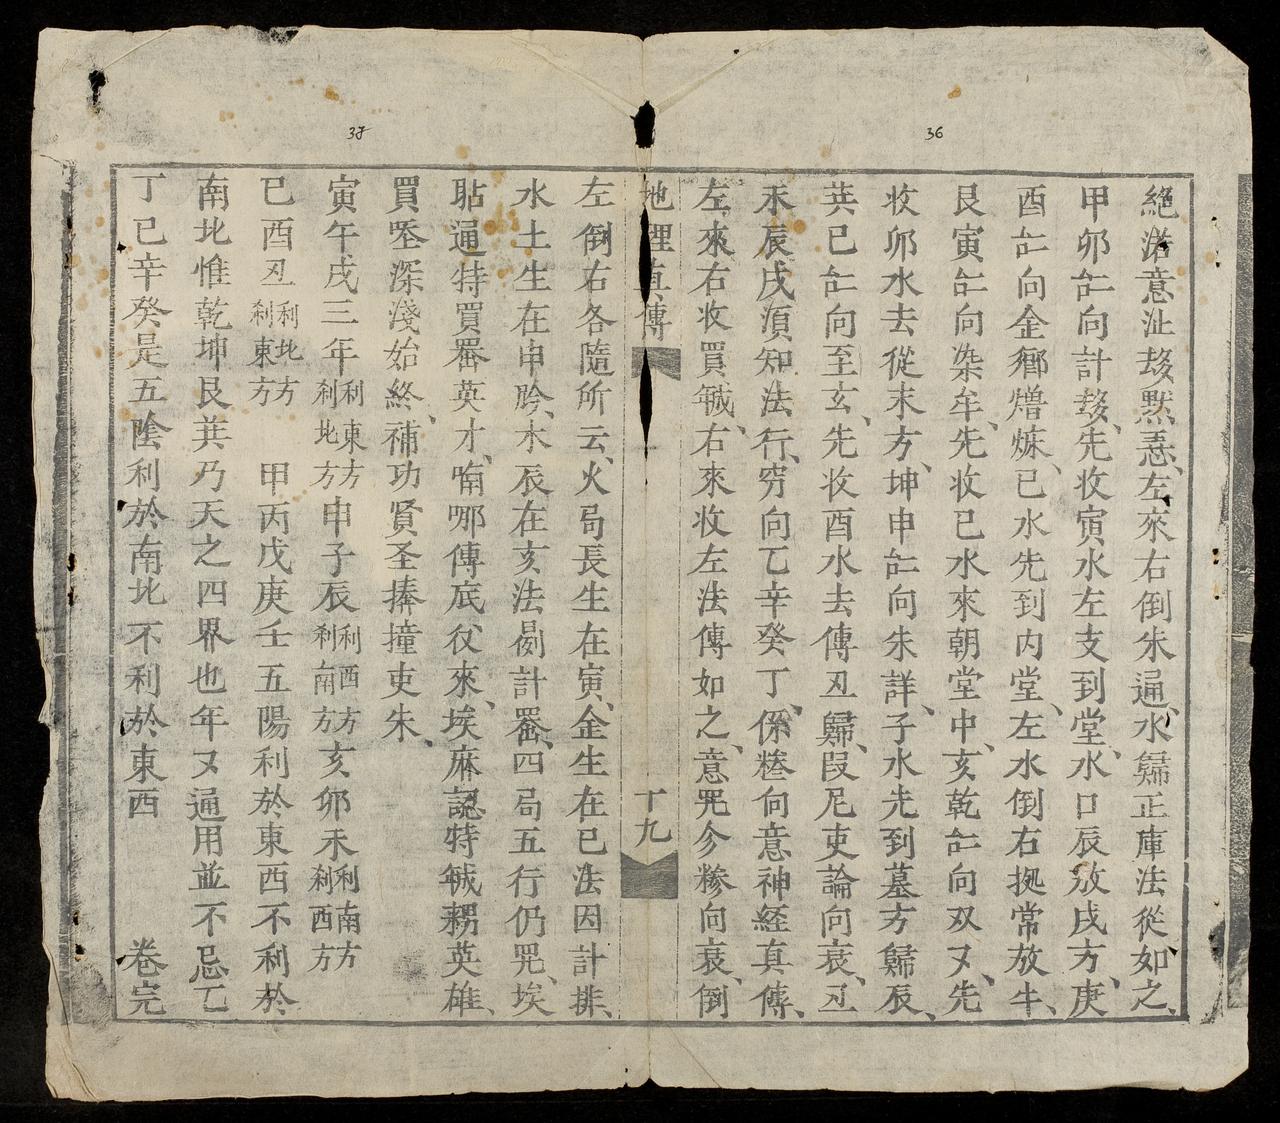 36
絶渃意沚𠀧黙𢚸、左來右倒朱遍、水歸正庫法從如之、
甲卯𠄼向計𠀧、先收寅水左支到堂、水口辰放戌方、庚
酉𠄼向金
巳水先到内堂、左水倒右拠常放牛、
艮寅𠄼向染牟、先收巳水來朝堂中、亥乾𠄼向双又、先
收卯水去從未方、坤申𠄼向朱詳、子水先到墓方歸辰、
巽巳𠄼向至玄、先收酉水去傳丑歸、段尼吏論向衰、丑
未辰戌湏知法行、穷向乙辛癸丁、係
向意神経真傳、
左來右收買
、右來收左法傳如之、意咒
向衰、倒
地理直傳
十九
37
左倒右各隨所云、火局長生在寅、金生在巳法因計排、
水土生在申
、木辰在亥法例計畧、四局五行仍咒、埃
貼通特買畧英才、喃哪傳底
來、埃麻認特
英雄、
買
深淺始終、補功賢圣捧撞吏朱、
寅午戌三年利東方刹北方申子辰利西方刹南方亥卯未利南方刹西方
巳酉丑利北方刹東方 甲丙戊庚壬五陽利於東西不利於
南北惟乾坤艮巽乃天之四界也年又通用並不忌乙
丁己辛癸是五陰利於南北不利於東西 卷完